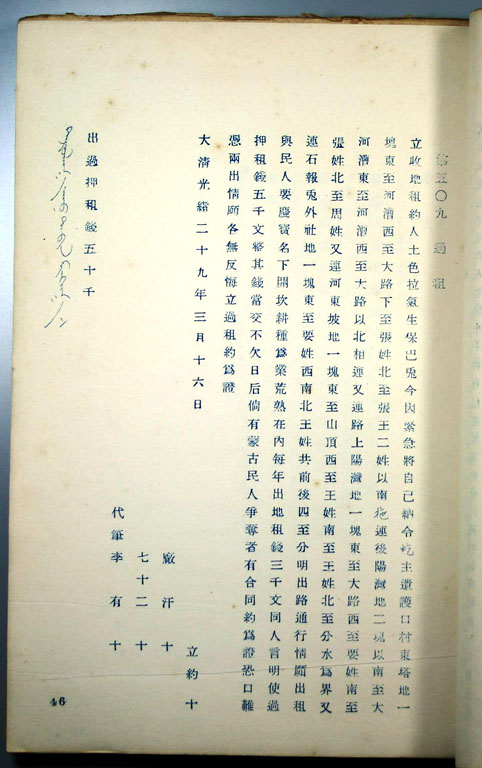 第五〇九　過租
立收地租約人土色拉氣生保巴兎今因緊急將自己納令圪主道護口村東塔地一
塊東至河漕西至大路下至張姓北至張王二姓以南拖連後陽灣地二塊以南至大
河漕東至河漕西至大路以北相連又連路上陽灣地一塊東至大路西至要姓南至
張姓北至周姓又連河東坡地一塊東至山頂西至王姓南至王姓北至分水爲界又
連石報兎外社地一塊東至要姓西南北王姓共前後四至分明出路通行情願出租
與民人要慶賓名下開坎耕種爲業荒熟在內每年出地租錢三千文同人言明使過
押租錢五千文整其錢當交不欠日后倘有蒙古民人爭奪者有合同約爲證恐口難
憑兩出情願各無反悔立過租約爲證
大清光緒二十九年三月十六日
立約十
廠汗十
七十二十
代筆李有十
出過押租錢五十千
46